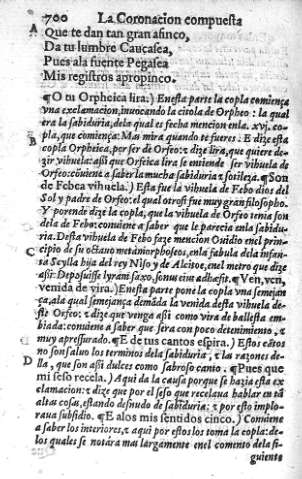 700 La Coronacion compuesta
A Que te dan tan gran asinco,
Da tu lumbre Caucasea,
Pues ala fuente Pegasea
Mis registros apropinco.
¶O tu Orpheica lira:) Enesta parte la copla comiença
vna exclamacion, inuocando la citola de Orpheo: la qual
era la sabiduria, dela qual es fecha mencion enla .xvj. co-
B pla, que comiença: Mas mira quando te fueres. E dize esta
copla Orpheica, por ser de Orfeo: z dize lira, que quiere de-
zir vihuela: assi que Orfeica lira se entiende ser vihuela de
Orfeo: cõuiene a saber la mucha sabiduria z sotileza. ¶Son
de Febea vihuela.) Esta fue la vihuela de Febo dios del
Sol y padre de Orfeo: el qual otrosi fue muy gran filosopho.
Y porende dize la copla, que la vihuela de Orfeo tenia son
dela de Febo: conuiene a saber que le parecia enla sabidu-
ria. Desta vihuela de Febo faze mencion Ouidio enel prin-
C cipio de su octauo metamorphoseos, enla fabula dela infan-
ta Scylla hija del rey Niso y de Alcitoe, enel metro que dize
assi: Deposuisse lyram: saxo, sonus eius adhæsit. ¶Ven, ven,
venida de vira.) Enesta parte pone la copla vna semejan
ça, ala qual semejança demãda la venida desta vihuela de-
ste Orfeo: z dize que venga assi como vira de ballesta em-
biada: conuiene a saber que sea con poco detenimiento, z
muy apressurado. ¶E de tus cantos espira.) Estos cãtos
D no son saluo los terminos dela sabiduria, z las razones de-
lla, que son assi dulces como sabroso canto. ¶Pues que
mi seso recela.) Aqui da la causa porque se hazia esta ex
clamacion: z dize que por el seso que recelaua hablar en tã
altas cosas, estando desnudo de sabiduria: z por esto implo-
raua subsidio. ¶E alos mis sentidos cinco.) Conuiene
a saber los interiores, z aqui por estos los toma la copla: de-
los quales se notára mas largamente enel comento dela si-
guiente